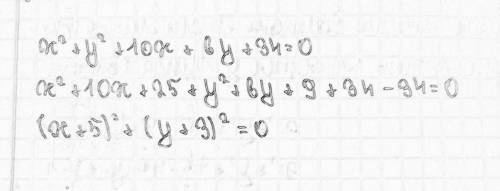 x² + y² + 10x + 6y + 34 = 0
x² + 10x + 25 + y² + 6y + 9 + 34 - 34 = 0
(x + 5)² + (y + 3)² = 0